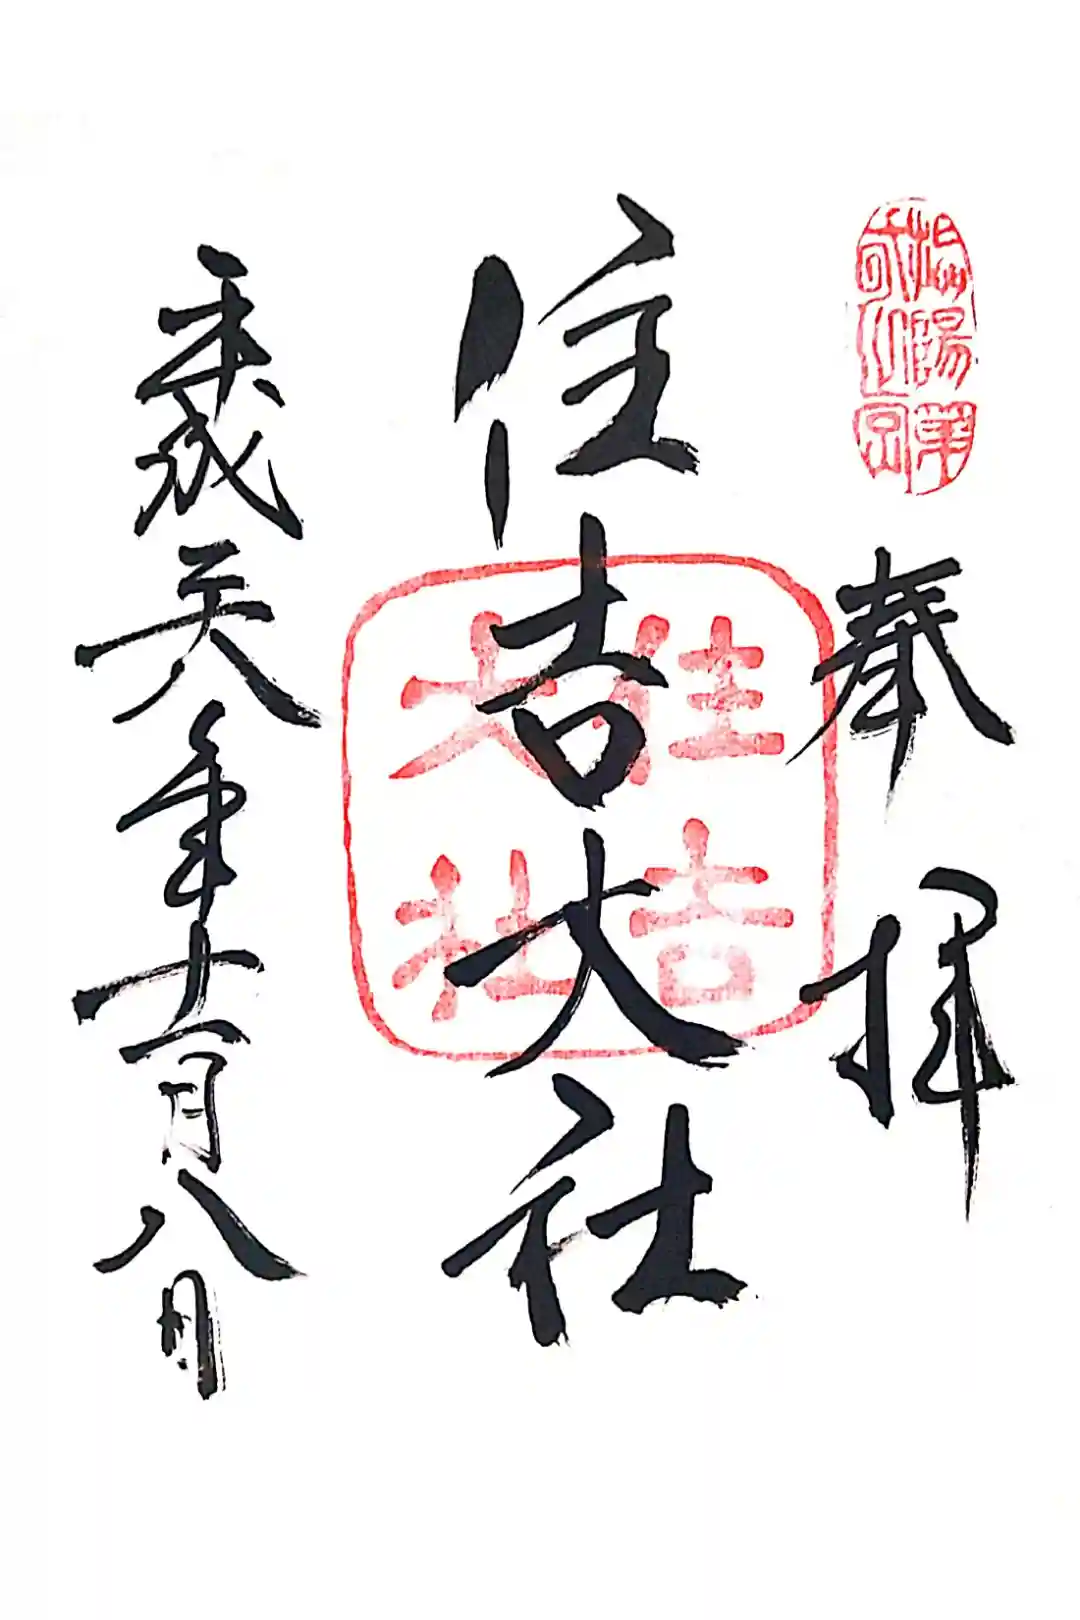 奉拝
住吉大社
住吉
大社
平成二六年十一月八日